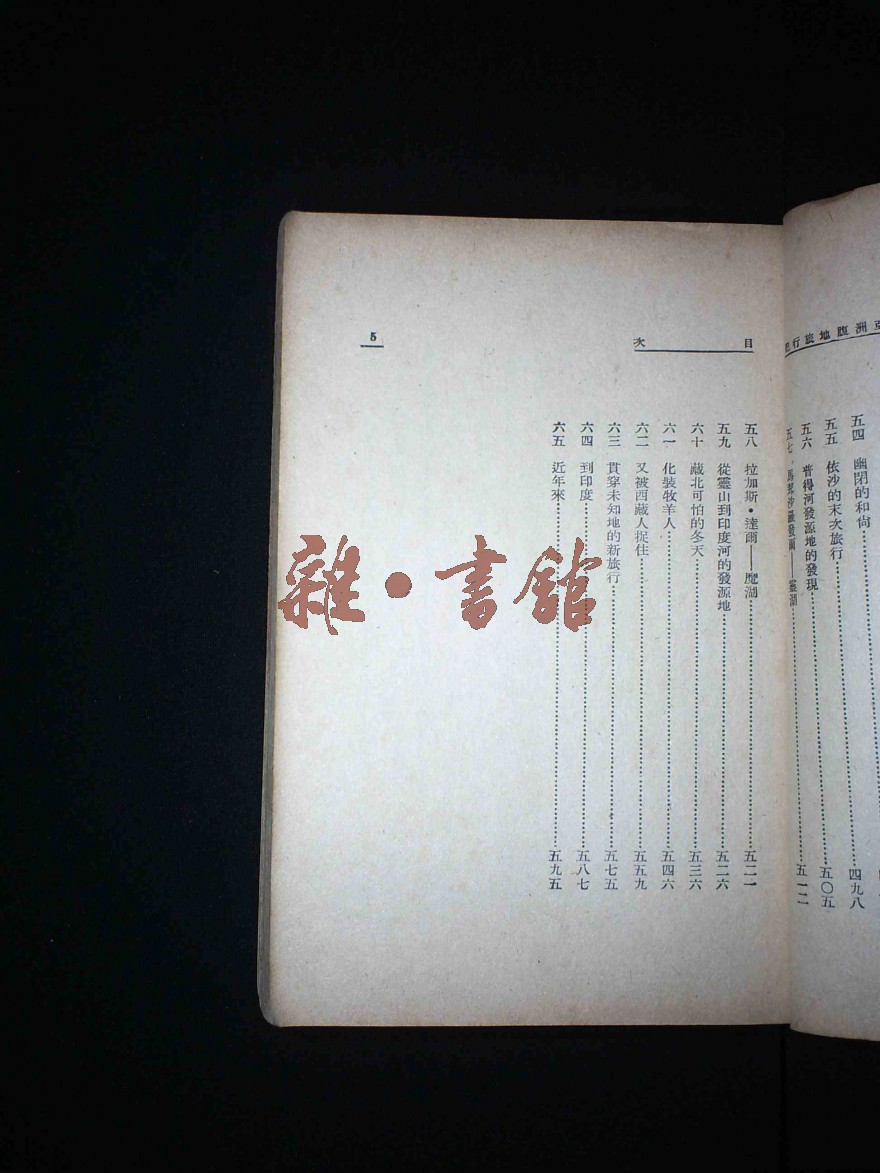 亞洲腹地旅行記
五四 幽閉的和尙 四九八
五五 依沙的末次旅行 五〇五
五六 普得河發源地的發現
五七 ——靈湖 五一二
目次
5
五八 拉加斯•達爾——魔湖 五二一
五九 從靈山到印度河的發源地 五二六
六十 藏北可怕的冬天 五三六
六一 化裝牧羊人 五四六
六二 又被西藏人捉住 五五九
六三 貫穿未知地的新旅行 五七五
六四 到印度 五八七
六五 近年來 五九五
雜•書館